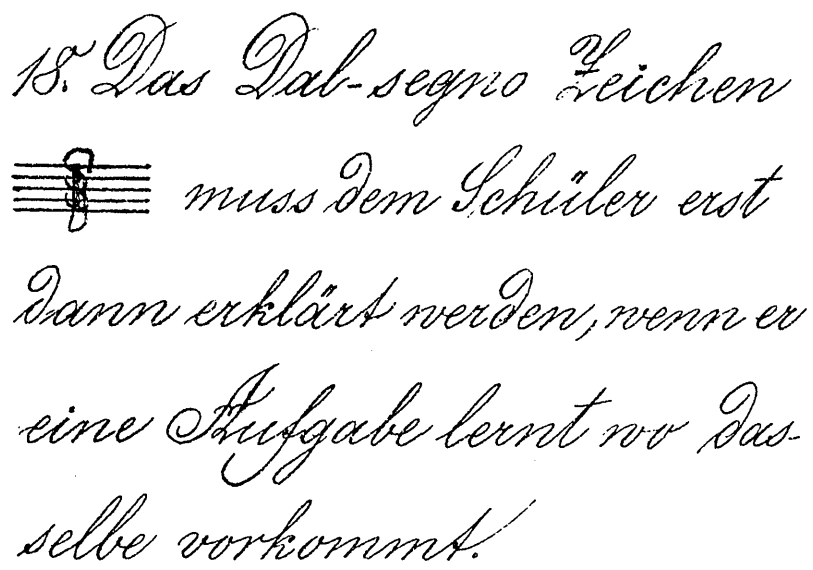 18. Das Dal-segno Zeichen
muss dem Schüler erst
dann erklärt werden, wenn er
eine Aufgabe lernt wo das-
selbe vorkommt.